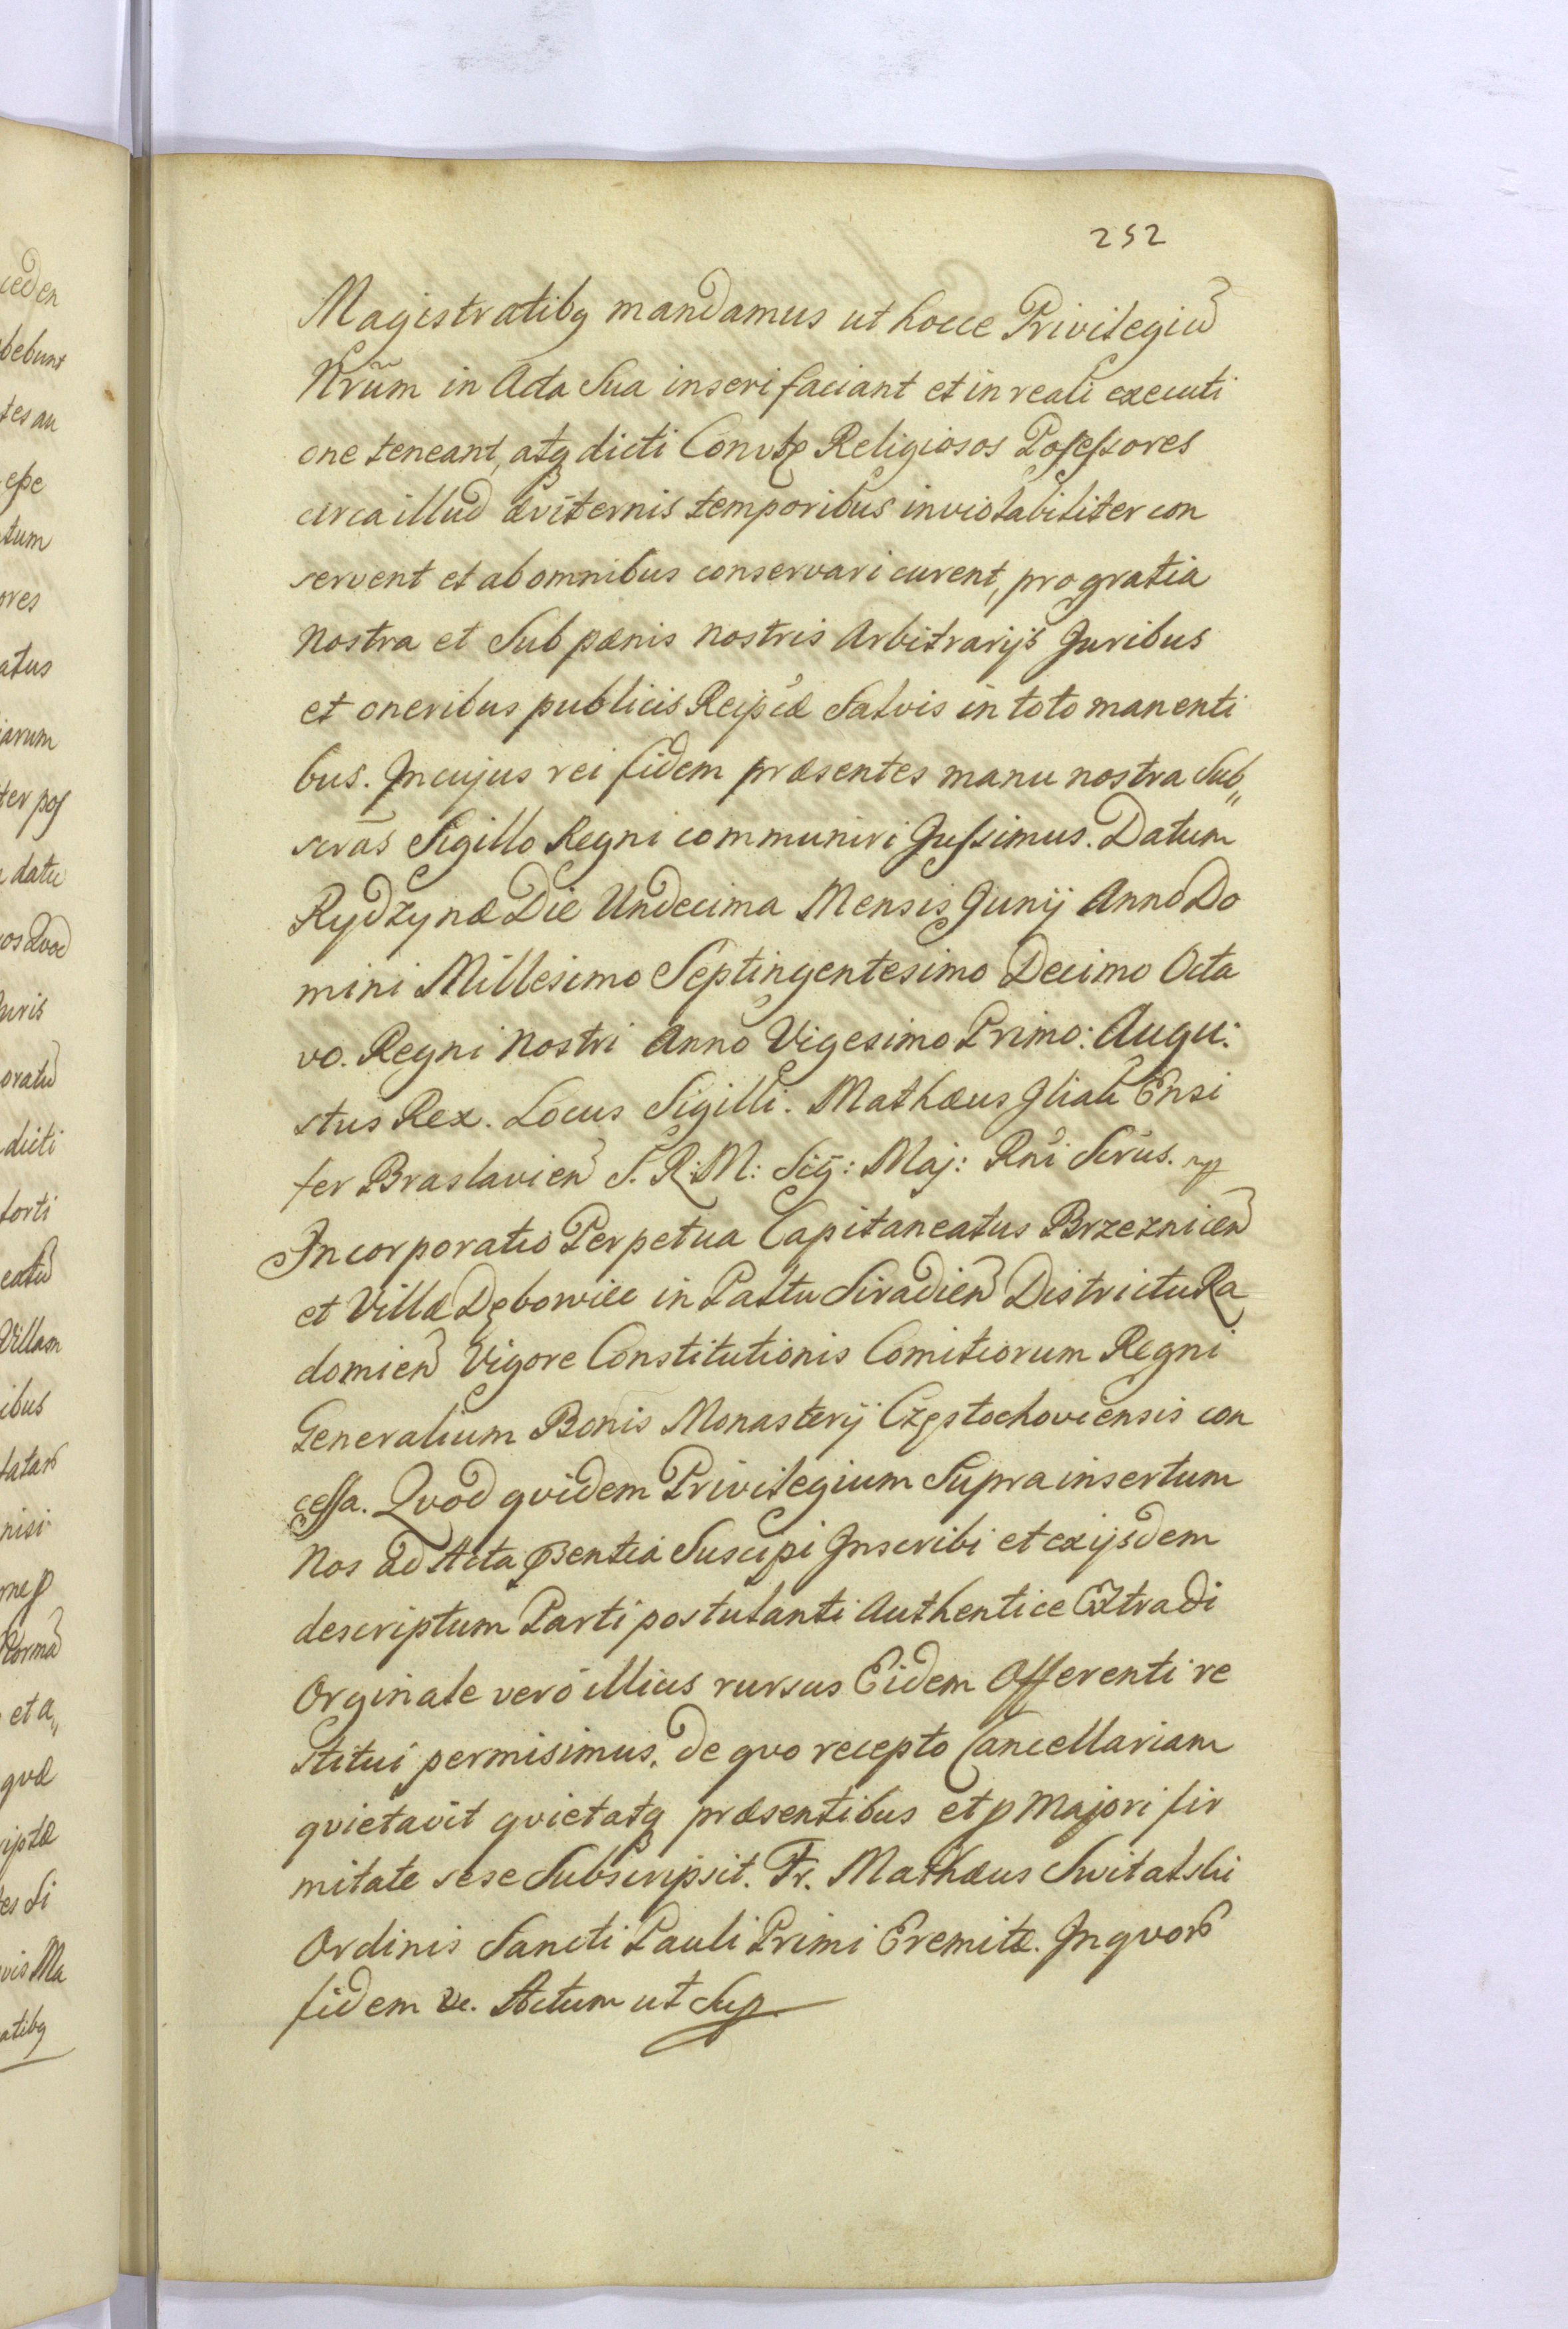 252
Magistratibq mandamus ut hocce Privilegiũ
Nrũm in Acta Sua inseri faciant et in reali executi
one teneant, atq dicti Convtꝯ Religiosos Poſeſsores
circa illud æviternis temporibus inviolabiliter con
servent et ab omnibus conservari curent, pro gratia
nostra et Sub pænis nostris Arbitrarijs Juribus
et oneribus publicis Reipcæ Salvis in toto manenti
bus. In cujus rei fidem præsentes manu nostra Sub„
scrãs Sigillo Regni communiri Juſsimus. Datum
Rydzynæ Die Undecima Mensis Junij Anno Do
mini Millesimo Septingentesimo Decimo Octa
vo. Regni nostri Anno Vigesimo Primo: Augu:
stus Rex. Locus Sigilli. Mathæus Ensi
fer Braslavień S. R: M: Sig: Maj: Rni Scrius. mp
Incorporatio Perpetua Capitaneatus Brzeznicen̄
et Villæ Dębowiec in Pałtu Siradien̄ Districtu Ra
domien̄ Vigore Constitutionis Comitiorum Regni
Generalium Bonis Monasterij Częstochoviensis con
ceſsa. Qvod qvidem Privilegium Supra insertum
Nos ad Acta pßentia Suscipi Inscribi et ex ijsdem
descriptum Parti postulanti Authentice Extradi
Orginale vero illius rursus Eidem Offerenti re
stitui permisimus. de qvo recepto Cancellariam
qvietavit qvietatq præsentibus et p Majori fir
mitate sese Subscripsit. Fr. Mathæus Switalski
Ordinis Sancti Pauli Primi Eremitæ. In qvoꝝ
fidem &c. Actum ut Sup
ceden
bebunt
tes au
eſse
tum
ores
atus
iarum
ter poſ
datu
os Qvod
Juris
oratũ
dicti
forti
catũ
Villam
ibus
nisi
et a„
qvæ
riptæ
es Si
vis Ma
atibq